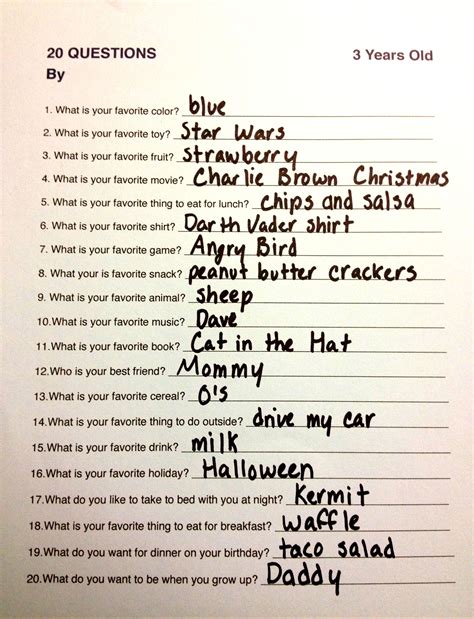 20 QUESTIONS 3 Years Old
By
1. What is your favorite color? blue
2. What is your favorite toy? Star Wars
3. What is your favorite fruit? strawberry
4. What is your favorite movie? Charlie Brown Christmas
5. What is your favorite thing to eat for lunch? chips and salsa
6. What is your favorite shirt? Darth Vader shirt
7. What is your favorite game? Angry Bird
8. What your is favorite snack? peanut butter crackers
9. What is your favorite animal? sheep
10.What is your favorite music? Dave
11.What is your favorite book? Cat in the Hat
12.Who is your best friend? Mommy
13.What is your favorite cereal? O's
14.What is your favorite thing to do outside? drive my car
15.What is your favorite drink? milk
16.What is your favorite holiday? Halloween
17.What do you like to take to bed with you at night? Kermit
18.What is your favorite thing to eat for breakfast? waffle
19.What do you want for dinner on your birthday? taco salad
20.What do you want to be when you grow up? Daddy